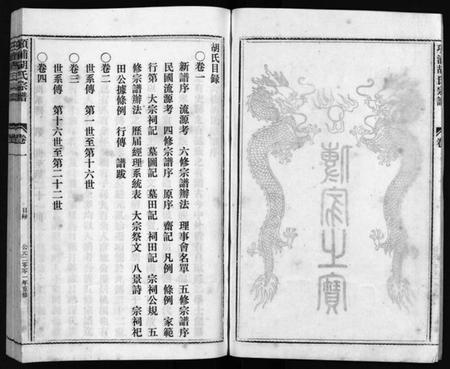 胡氏目録
○卷一
新譜序 流源考 六修宗譜辦法 理事會名單 五修宗譜序
民國流源考 四修宗譜序 原序 齋記 凡例 條例 家範
行第 大宗祠記 墓圖記 墓田記 祠田記 宗祠公規 五
修宗譜辦法 歷屆經理系統表 大宗祭文 八景詩 宗祠祀
田公據條例 行傳 譜跋
○卷二
世系傳 第一世至第十六世
○卷三
世系傳 第十六世至第二十二世
○卷四
胡氏宗譜
卷
目録
公元二零零一年重修
之寶